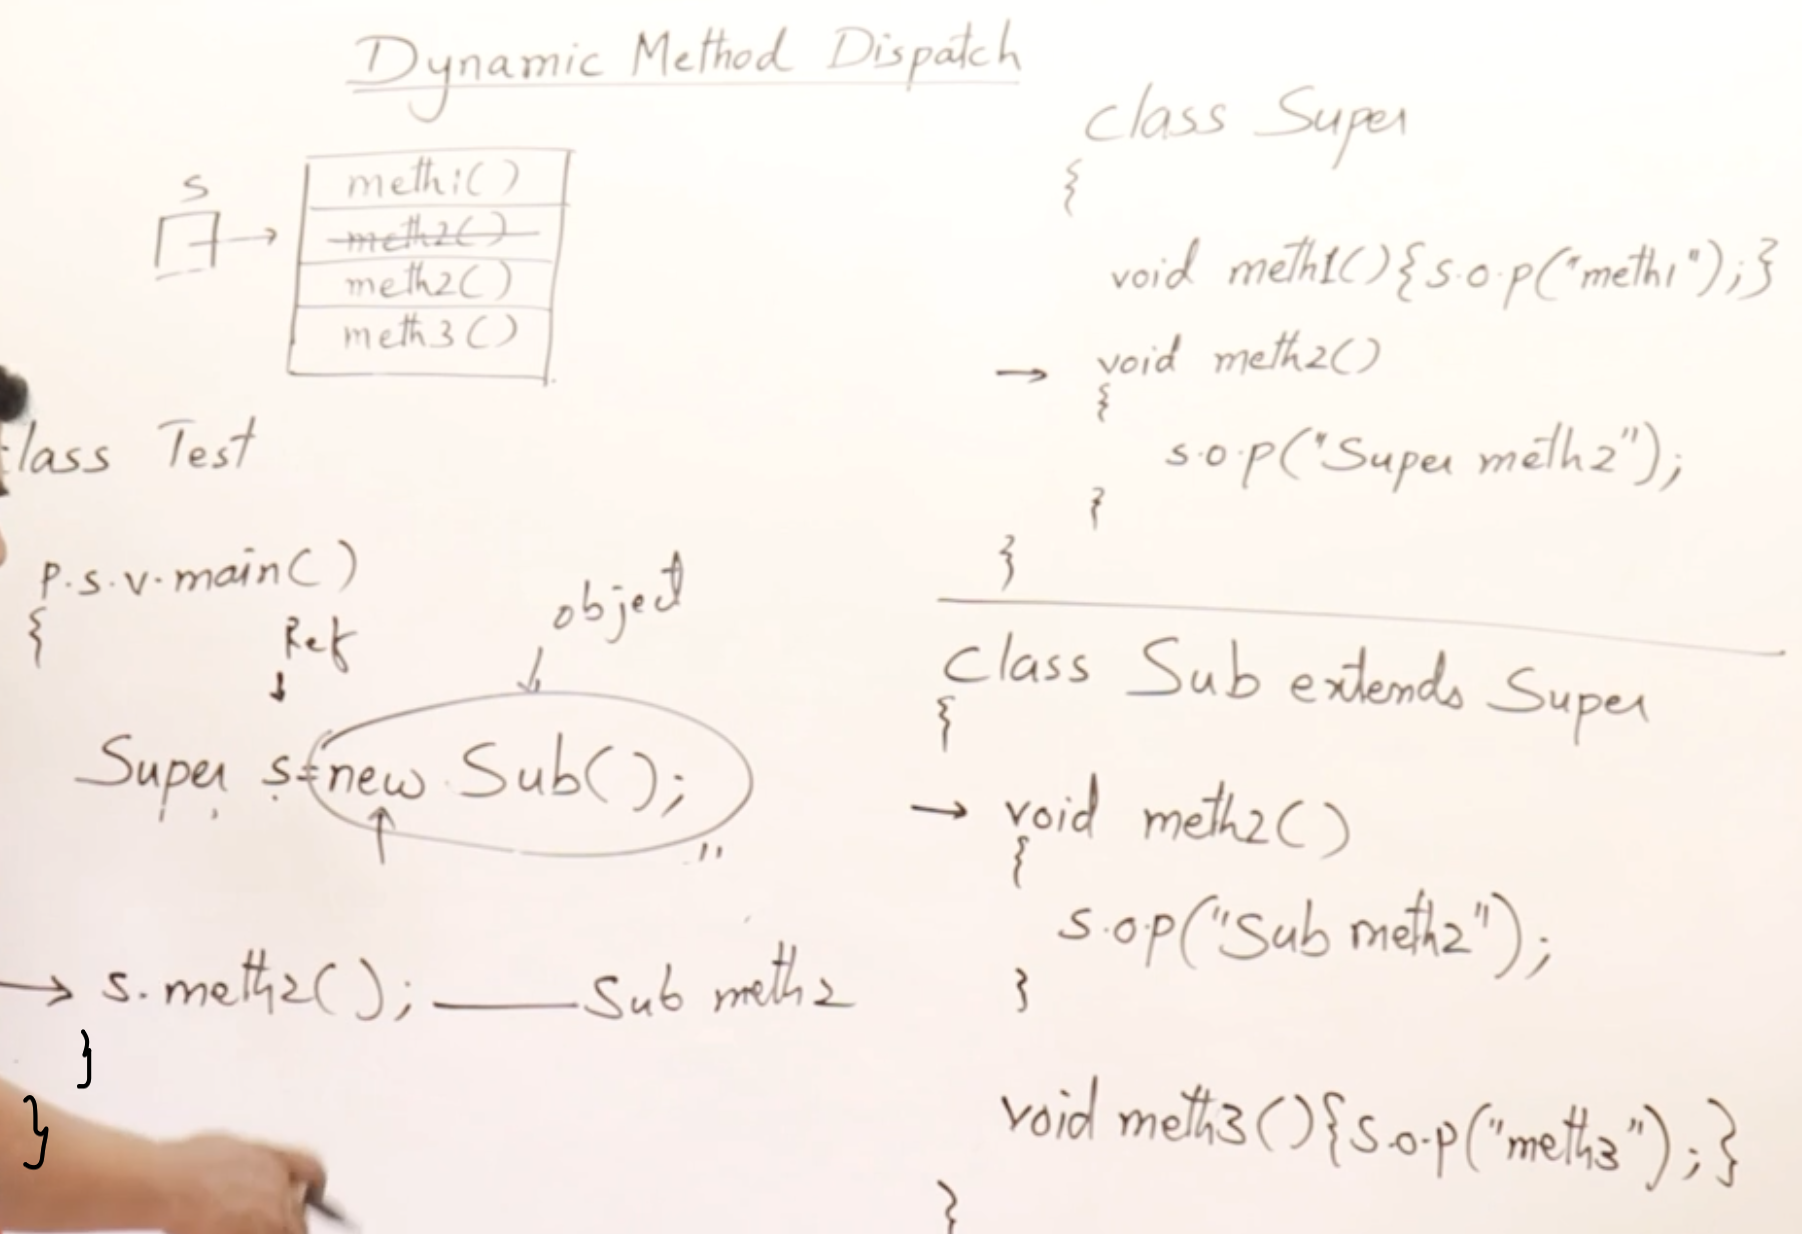 Dynamic Method Dispatch
s
meth1()
meth2()
meth2()
meth3()
class Test
p.s.v.main()
{
Ref
object
Super s=new Sub();
"
s.meth2(); Sub meth2
}
}
class Super
{
void meth1(){s.o.p("meth1");}
void meth2()
{
s.o.p("Super meth2");
}
}
class Sub extends Super
{
void meth2()
{
s.o.p("Sub meth2");
}
void meth3(){s.o.p("meth3");}
}